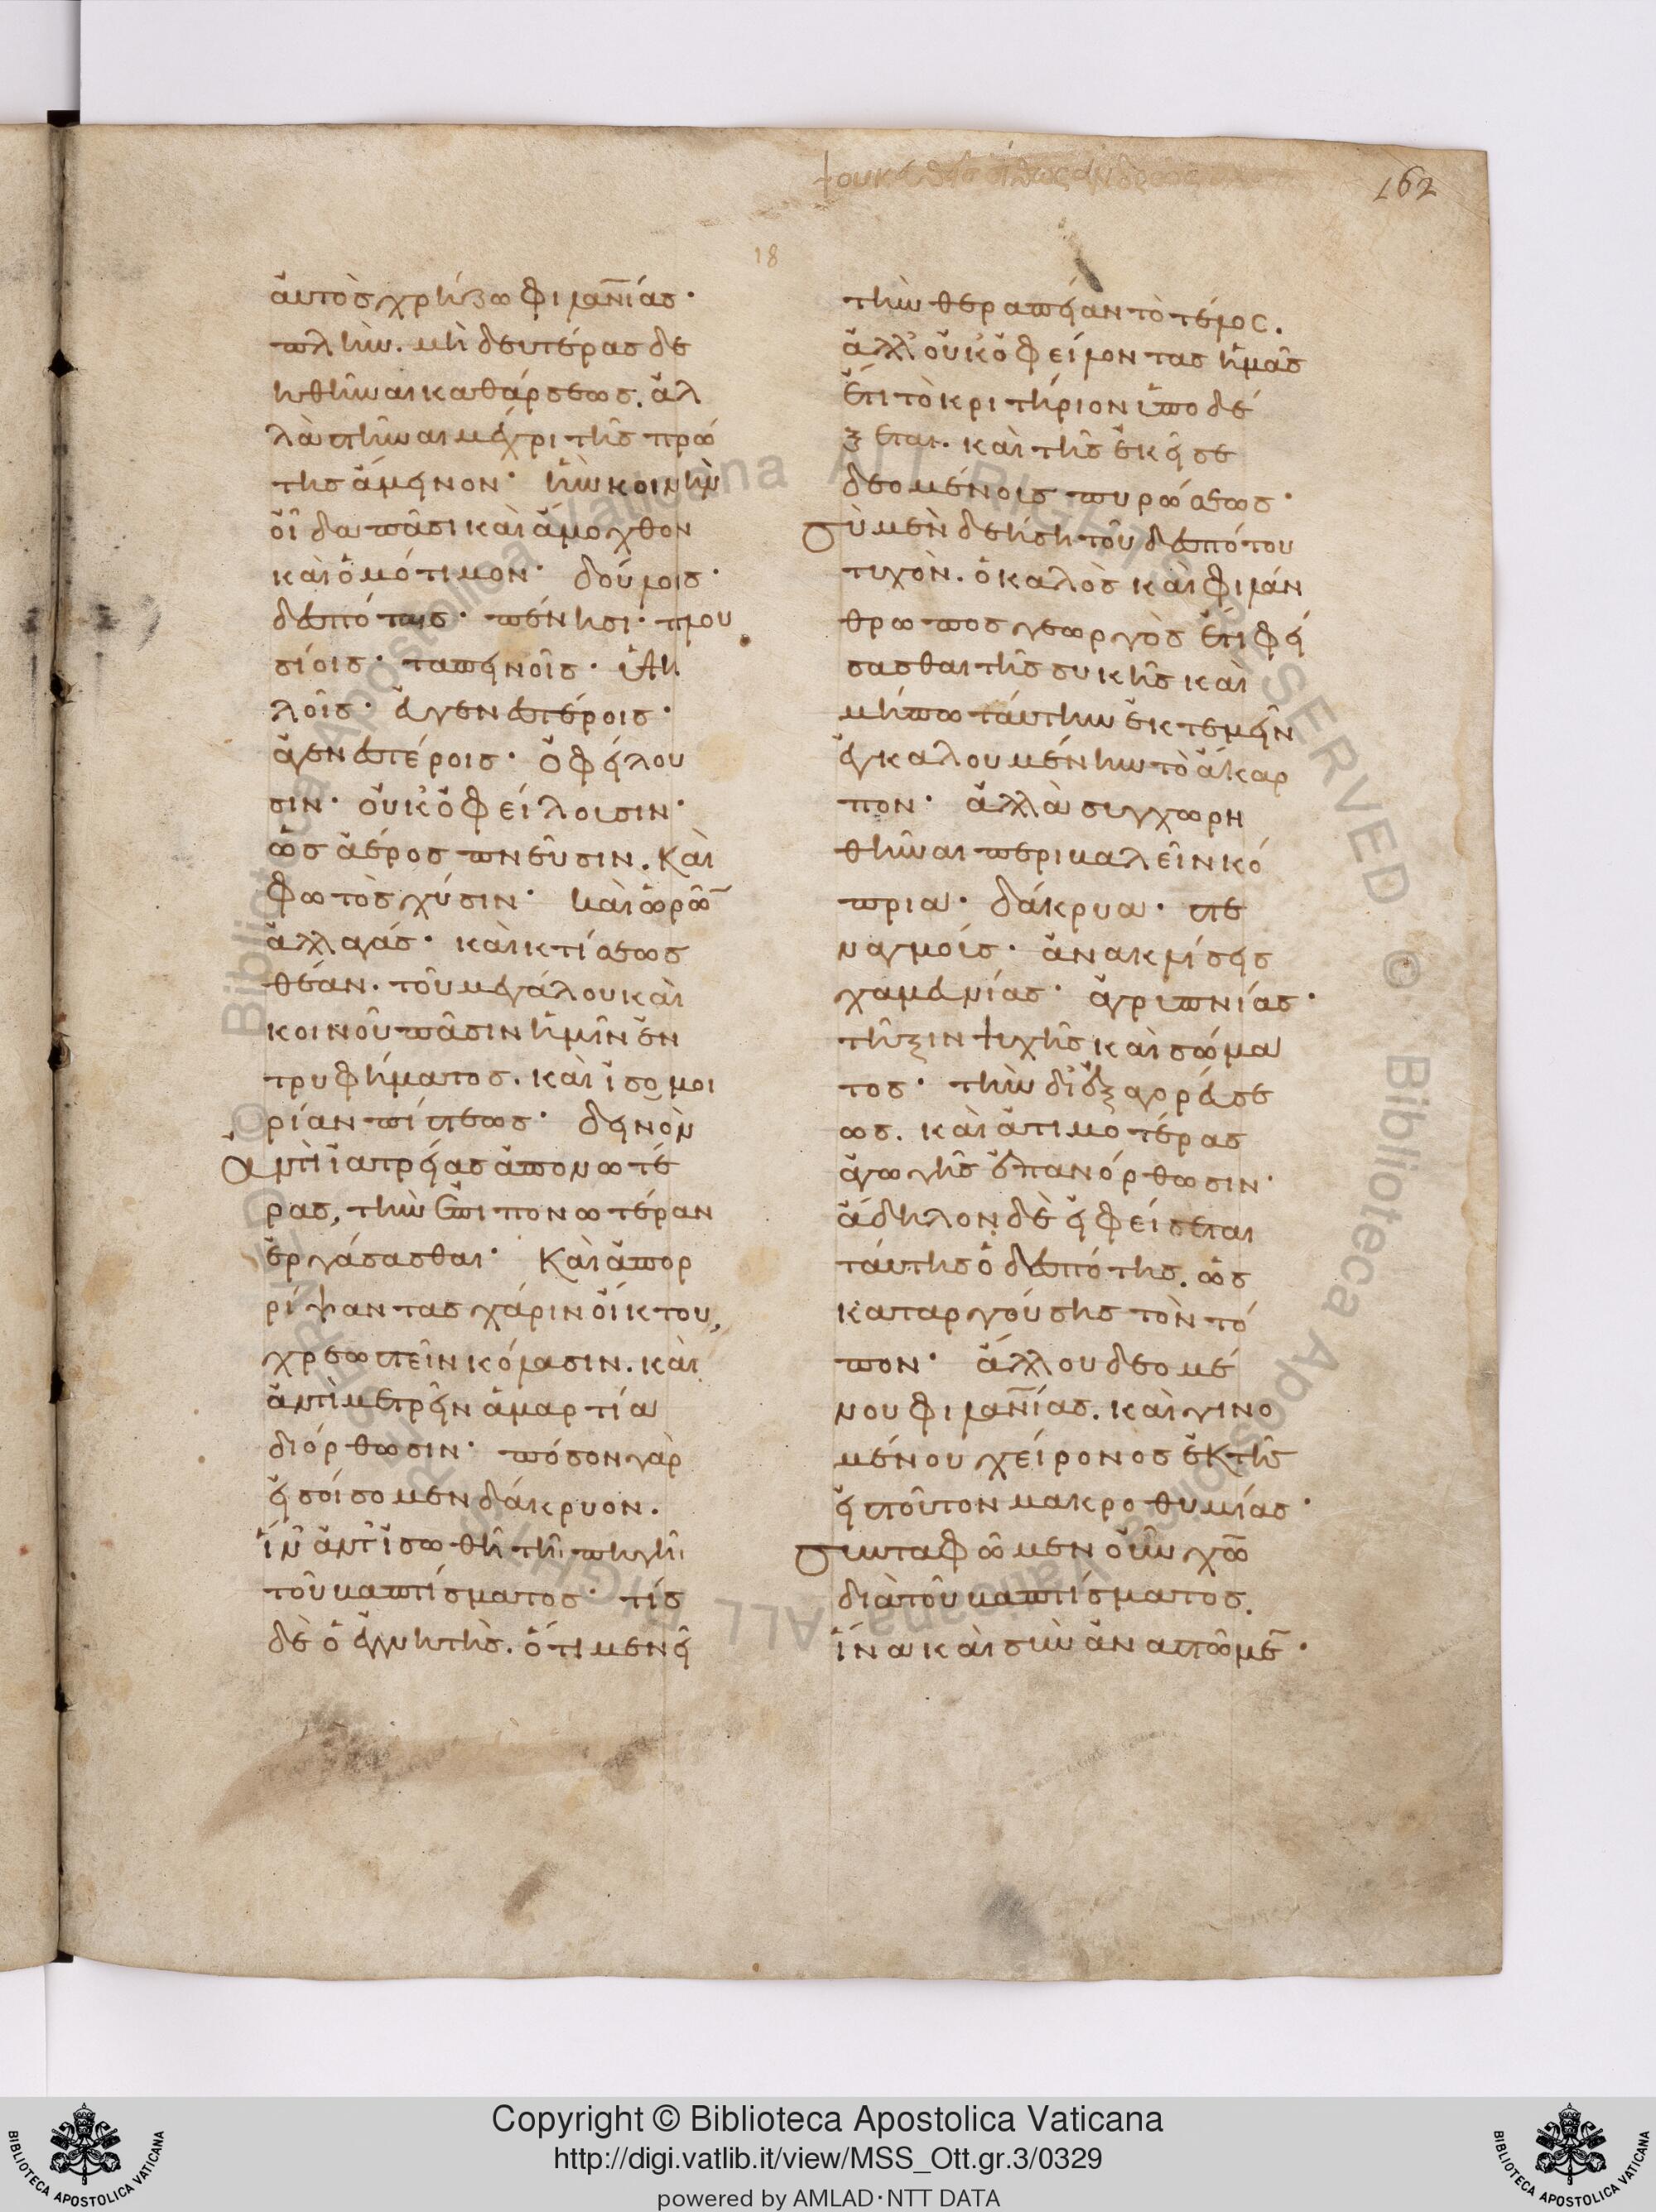 162
18
ἀυτὸς χρήζω φιλανίας·
πλὴν. μὴ δευτέρας δε
ηθῆναι καθάρσεως. ἀλ
λὰ στῆναι μέχρι τῆς πρώ
της ἄμεινον· ἣν κοινὴν
οἶδα πᾶσι καὶ ἄμοχθον
καὶ ὁμότιμον· δούλοις·
δεσπόταις· πένησι· πλου
σίοις· ταπεινοῖς· ὑψη
λοῖς· εὐγενεστέροις·
ἀγενεστέροις· ὀφείλου
σιν· οὐκ ὀφείλουσιν·
ὡς ἀέρος πνεῦσιν. καὶ
φωτὸς χύσιν· καὶ ὡρῶν
ἀλλαγάς· καὶ κτίσεως
θέαν. τοῦ μεγάλου καὶ
κοινοῦ πᾶσιν ἡμῖν ἐν
τρυφήματος. καὶ ἰσομοι
ρίαν πίστεως· δεινὸν
ἀντὶ ἰατρείας ἀπονωτέ
ρας, τὴν ἐπιπονωτέραν
ἐργάσασθαι· Καὶ ἀπορ
ρίψαντας χάριν οἴκτου,
χρεωστεῖν κόλασιν. καὶ
ἀντιμετρεῖν ἁμαρτία
διόρθωσιν· πόσον γὰρ
εἰσοίσομεν δάκρυον.
ἵν' ἀντισωθῆ τῆ πηγῆ
τοῦ βαπτίσματος· τίς
δὲ ὁ ἐγγυητὴς. ὅτι μενεῖ
τὴν θεραπείαν τὸ τέλος.
ἀλλ' οὐκ ὀφείλοντας ἡμᾶς
ἔτι τὸ κριτήριον ὑποδέ
ξεται. καὶ τῆς ἐκεῖσε
δεομένοις πυρώσεως·
σὺ μὲν δεήση τοῦ δεσπότου
τυχὸν. ὁ καλὸς καὶ φιλάν
θρωπος γεωργὸς ἔτι φεί
σασθαι τῆς συκῆς καὶ
μήπω ταύτην ἐκτεμεῖν
ἐγκαλουμένην τὸ ἄκαρ
πον· ἀλλὰ συγχωρη
θῆναι περιβαλεῖν κό
πρια· δάκρυα· στε
ναγμοίς· ἀνακλίσεις
χαμευνίας· ἀγρυπνίας·
τῆξιν ψυχῆς καὶ σώμα
τος· τὴν δι' ἐξαγορεύσε
ως. καὶ ἀτιμοτέρας
ἀγωγῆς ἐπανόρθωσιν·
ἄδηλον δὲ εἰ φείσεται
ταύτης ὁ δεσπότης. ὡς
καταργούσης τὸν τό
πον· ἄλλου δεομέ
νου φιλανίας. καὶ γινο
μένου χείρονος ἐκ τῆς
εἰς τοῦτον μακροθυμίας·
συνταφῶμεν οὖν χῶ
διὰ τοῦ βαπτίσματος.
ἵνα καὶ συναναστῶμεν·
Copyright © Biblioteca Apostolica Vaticana
http://digi.vatlib.it/view/MSS_Ott.gr.3/0329
powered by AMLAD·NTT DATA
BIBLIOTECA APOSTOLICA VATICANA
BIBLIOTECA APOSTOLICA VATICANA